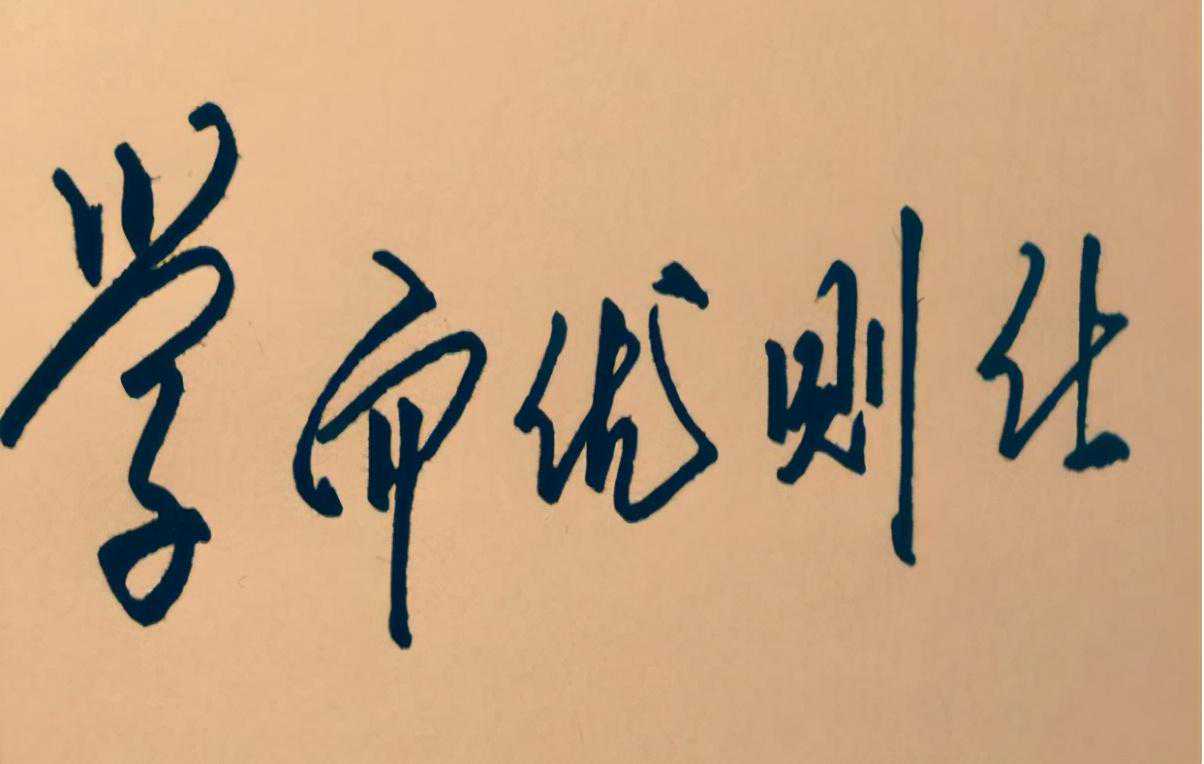 学而优则仕